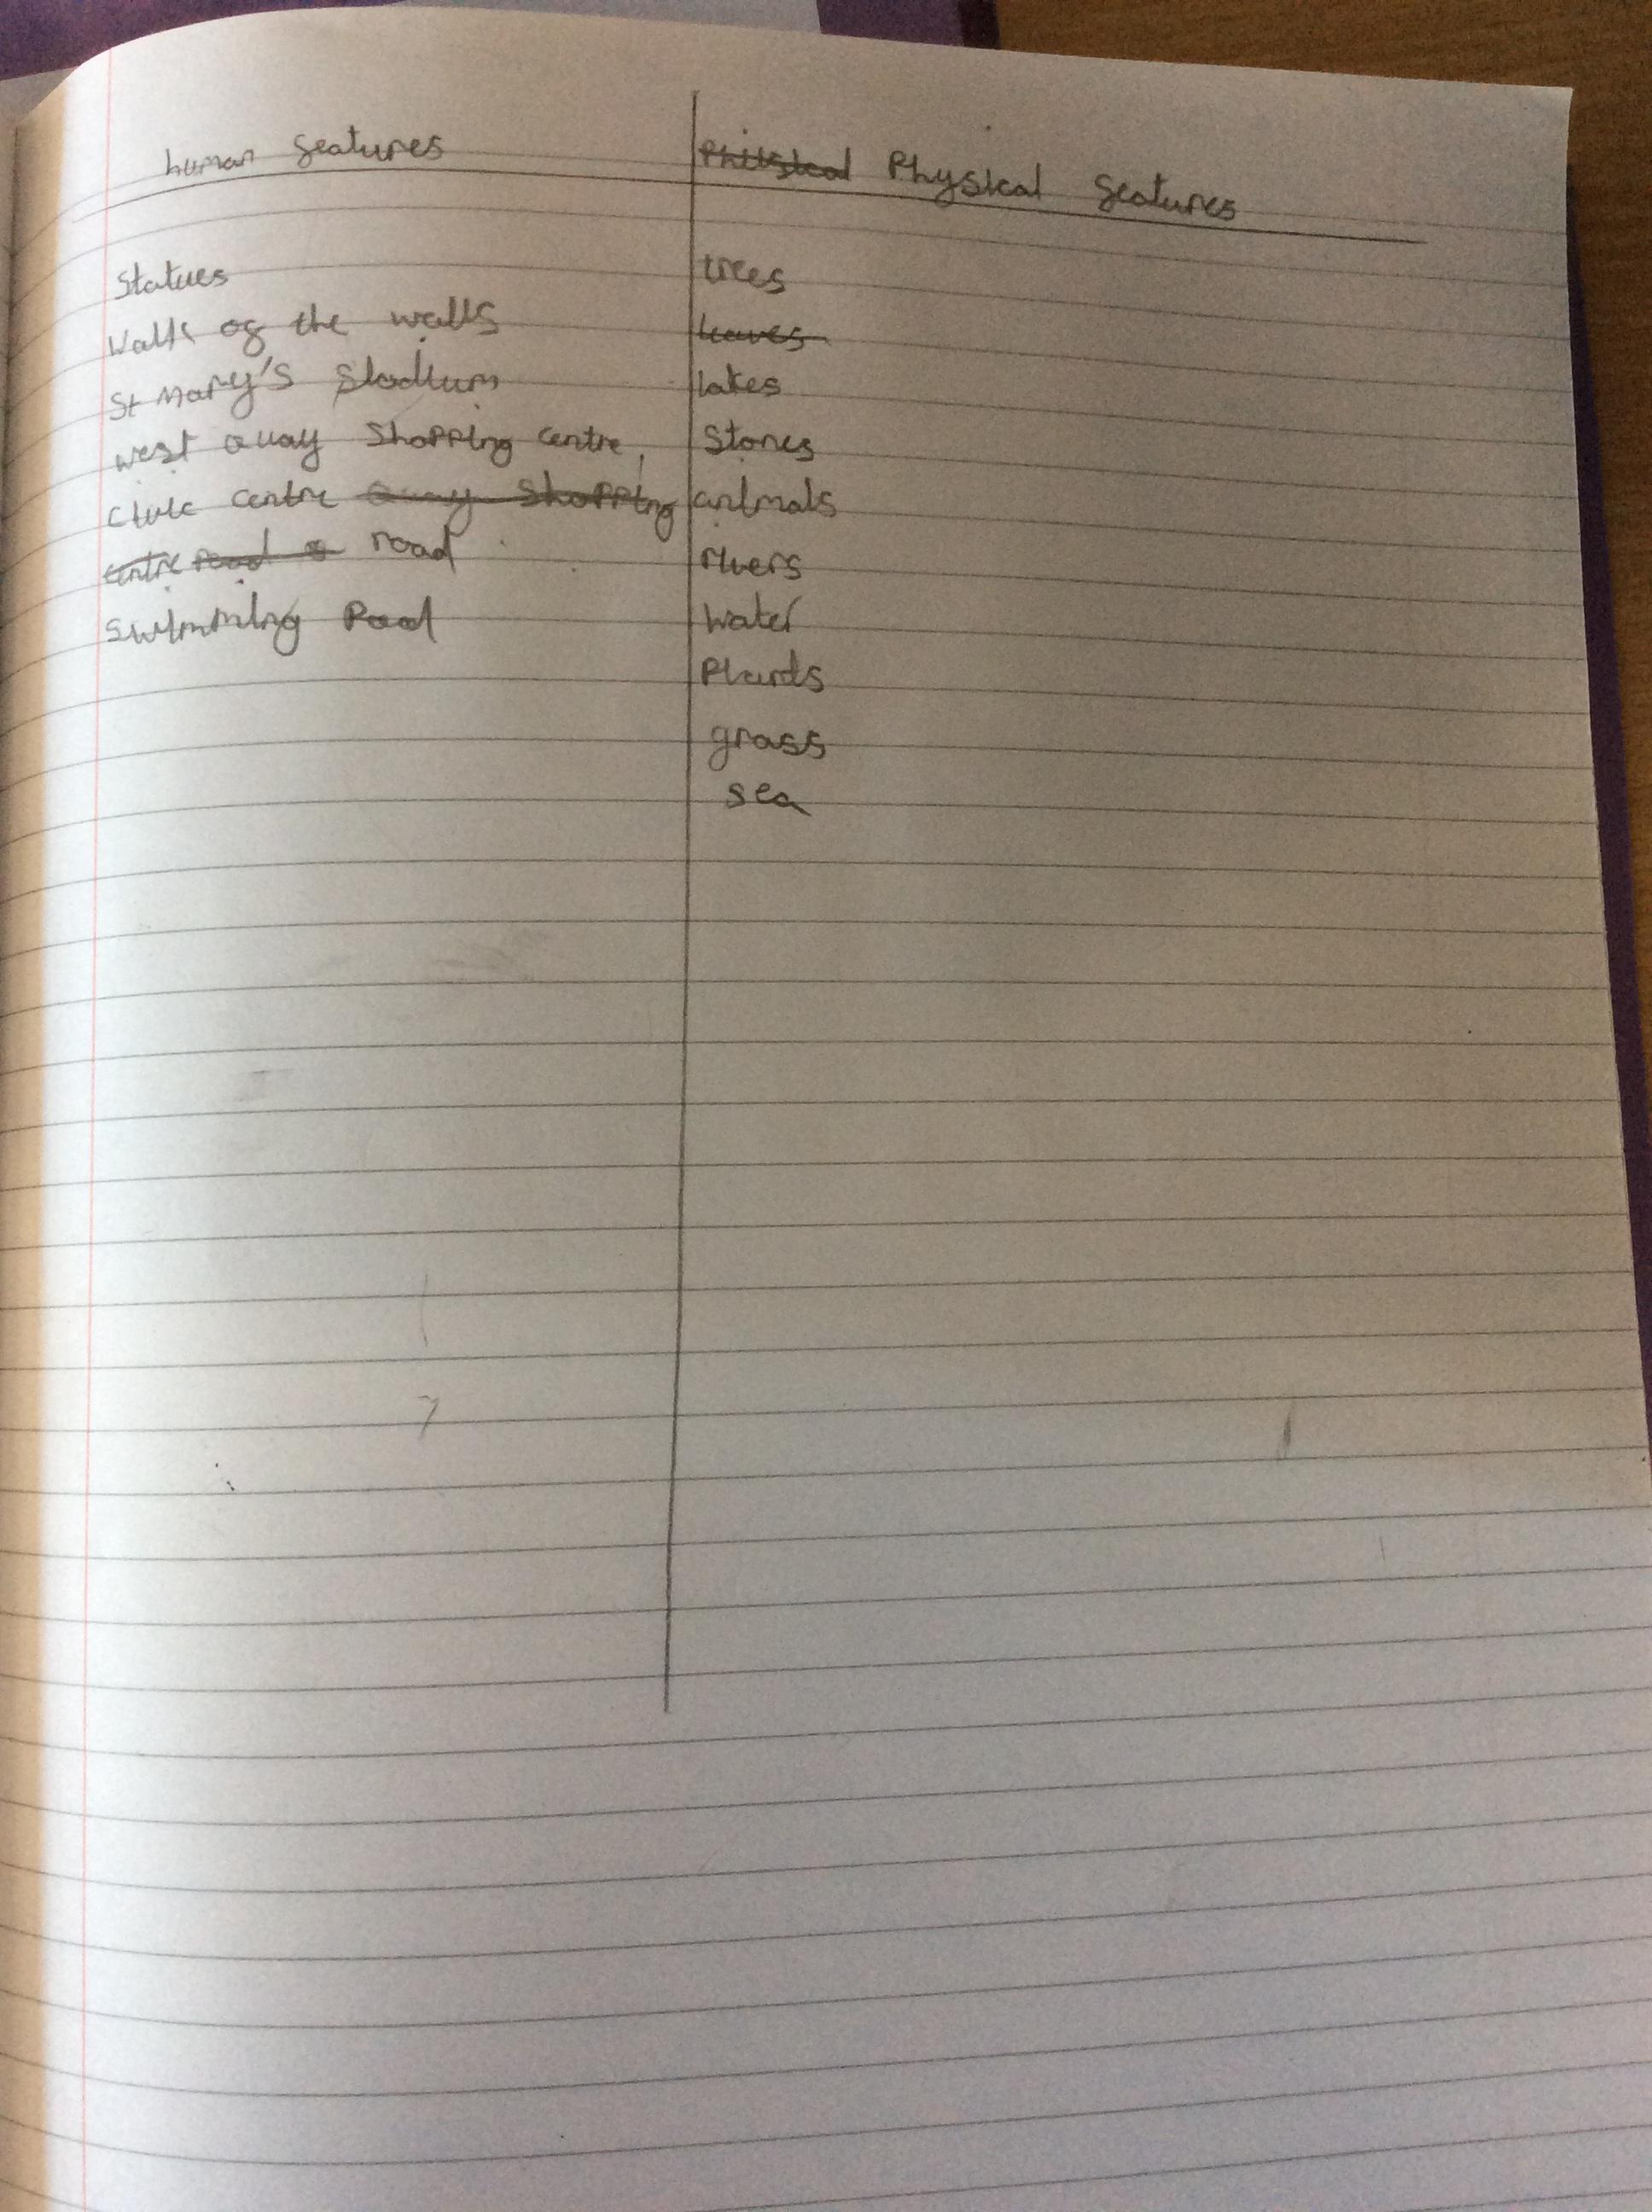 human features
Statues
Walk of the walls
St Mary's Stadium
west Quay Shopping centre,
Civic centre Quay Shopping
centre road
Swimming Pool
Physical features
trees
leaves
lakes
Stones
animals
rivers
water
Plants
grass
sea